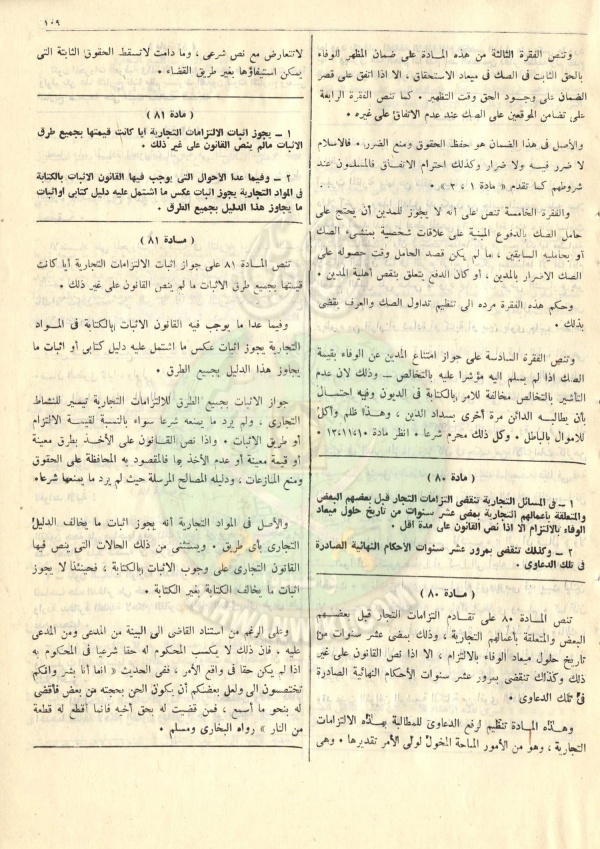 ١٠٩
وتنص الفقرة الثالثة من هذه المادة على ضمان المظهر للوفاء
بالحق الثابت فى الصك فى ميعاد الاستحقاق ، الا اذا اتفق على قصر
الضمان على وجود الحق وقت التظهير . كما تنص الفقرة الرابعة
على تضامن الموقعين على الصك عند عدم الاتفاق على غيره .
والأصل فى هذا الضمان هو حفظ الحقوق ومنع الضرر . فالاسلام
لا ضرر فيه ولا ضرار وكذلك احترام الاتفاق فالمسلمون عند
شروطهم كما تقدم « مادة ١ ، ٣ » .
والفقرة الخامسة تنص على أنه لا يجوز للمدين أن يحتج على
حامل الصك بالدفوع المبنية على علاقات شخصية بمنشىء الصك
أو بحامليه السابقين ، ما لم يكن قصد الحامل وقت حصوله على
الصك الاضرار بالمدين ، أو كان الدفع يتعلق بنقص أهلية المدين .
وحكم هذه الفقرة مرده الى تنظيم تداول الصك والعرف يقضى
بذلك .
وتنص الفقرة السادسة على جواز امتناع المدين عن الوفاء بقيمة
الصك اذا لم يسلم اليه مؤشرا عليه بالتخالص – وذلك لان عدم
التأشير بالتخالص مخالفة للامر بالكتابة فى الديون وفيه احتمال
بأن يطالبه الدائن مرة أخرى بسداد الدين ، وهذا ظلم وأكل
للاموال بالباطل . وكل ذلك محرم شرعا . انظر مادة ١٣،١١،١٠
( مادة ٨٠ )
١ – فى المسائل التجارية تنقضى التزامات التجار قبل بعضهم البعض
والمتعلقة بأعمالهم التجارية بمضى عشر سنوات من تاريخ حلول ميعاد
الوفاء بالالتزام الا اذا نص القانون على مدة اقل .
٢ – وكذلك تنقضى بمرور عشر سنوات الأحكام النهائية الصادرة
فى تلك الدعاوى .
( مادة ٨٠ )
تنص المادة ٨٠ على تقادم التزامات التجار قبل بعضهم
البعض والمتعلقة بأعمالهم التجارية ، وذلك بمضى عشر سنوات من
تاريخ حلول ميعاد الوفاء بالالتزام ، الا اذا نص القانون على غير
ذلك وكذلك تنقضى بمرور عشر سنوات الأحكام النهائية الصادرة
فى تلك الدعاوى .
وهذه المادة تنظيم لرفع الدعاوى للمطالبة بهذه الالتزامات
التجارية ، وهو من الأمور المباحة المخول لولى الأمر تقديرها . وهى
لاتتعارض مع نص شرعى ، وما دامت لاتسقط الحقوق الثابتة التى
يمكن استيفاؤها بغير طريق القضاء .
( مادة ٨١ )
١ – يجوز اثبات الالتزامات التجارية ايا كانت قيمتها بجميع طرق
الاثبات مالم ينص القانون على غير ذلك .
٢ – وفيما عدا الأحوال التى يوجب فيها القانون الاثبات بالكتابة
فى المواد التجارية يجوز اثبات عكس ما اشتمل عليه دليل كتابى اواثبات
ما يجاوز هذا الدليل بجميع الطرق .
( مادة ٨١ )
تنص المادة ٨١ على جواز اثبات الالتزامات التجارية أيا كانت
قيمتها بجميع طرق الاثبات ما لم ينص القانون على غير ذلك .
وفيما عدا ما يوجب فيه القانون الاثبات بالكتابة فى المواد
التجارية يجوز اثبات عكس ما اشتمل عليه دليل كتابى أو اثبات ما
يجاوز هذا الدليل بجميع الطرق .
جواز الاثبات بجميع الطرق للالتزامات التجارية تيسير للنشاط
التجارى ، ولم يرد ما يمنعه شرعا سواء بالنسبة لقيمة الالتزام
أو طريق الاثبات . واذا نص القانون على الأخذ بطرق معينة
أو قيمة معينة أو عدم الأخذ بها فالمقصود به المحافظة على الحقوق
ومنع المنازعات ، ودليله المصالح المرسلة حيث لم يرد ما يمنعها شرعا.
والأصل فى المواد التجارية أنه يجوز اثبات ما يخالف الدليل
التجارى بأى طريق . ويستثنى من ذلك الحالات التى ينص فيها
القانون التجارى على وجوب الاثبات بالكتابة ، فحينئذ لا يجوز
اثبات ما يخالف الكتابة بغير الكتابة .
وعلى الرغم من استناد القاضى الى البينة من المدعى ومن المدعى
عليه . فان ذلك لا يكسب المحكوم له حقا شرعيا فى المحكوم به
اذا لم يكن حقا فى واقع الأمر ، ففى الحديث « انما أنا بشر وانكم
تختصمون الى ولعل بعضكم أن يكون الحن بحجته من بعض فأقضى
له بنحو ما أسمع ، فمن قضيت له بحق أخيه فانما أقطع له قطعة
من النار » رواه البخارى ومسلم .